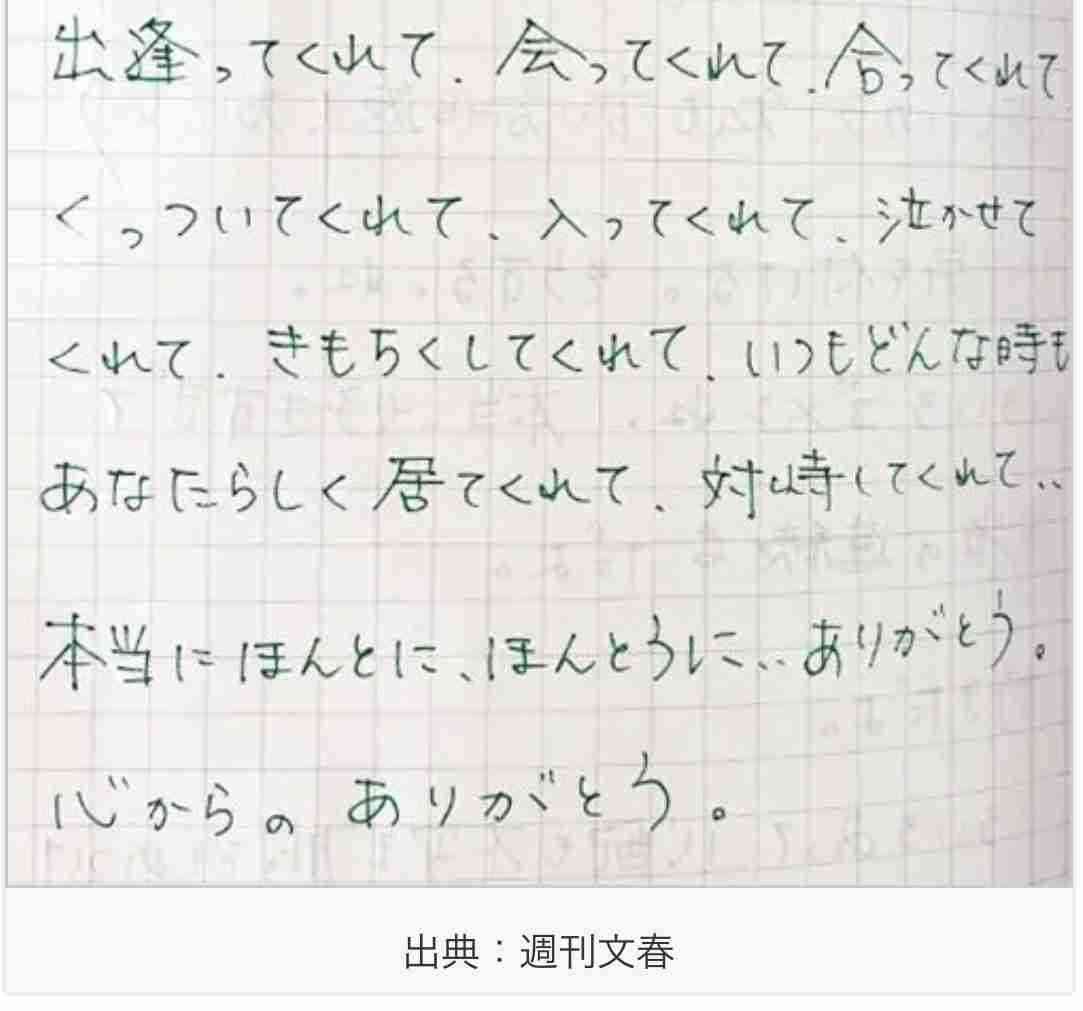 出逢ってくれて、会ってくれて、合ってくれて
くっついてくれて、入ってくれて、泣かせて
くれて、きもちくしてくれて、いつもどんな時も
あなたらしく居てくれて、対峙してくれて、、
本当にほんとに、ほんとうに、、ありがとう。
心からの ありがとう。
出典：週刊文春